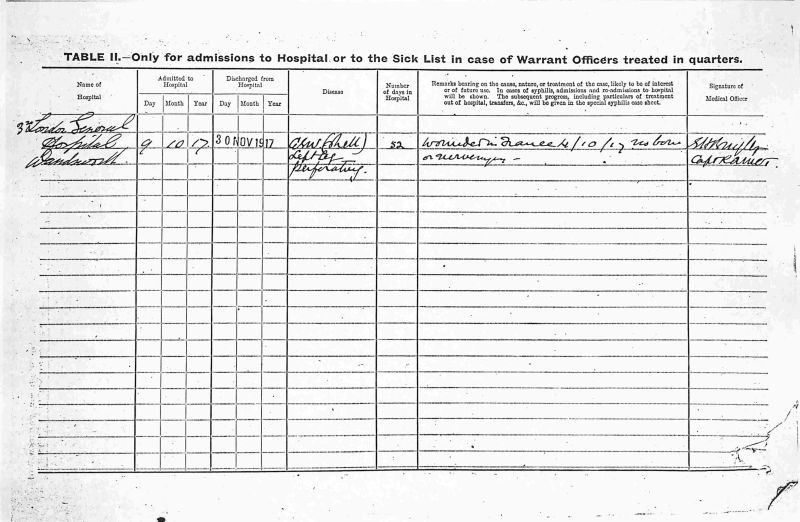 TABLE II.—Only for admissions to Hospital or to the Sick List in case of Warrant Officers treated in quarters.
Name of
Hospital
Admitted to
Hospital
Day Month Year
Discharged from
Hospital
Day Month Year
Disease
Number
of days in
Hospital
Remarks bearing on the cause, nature, or treatment of the case, likely to be of interest
or of future use. In cases of syphilis, admissions and re-admissions to hospital
will be shown. The subsequent progress, including particulars of treatment
out of hospital, transfers, &c., will be given in the special syphilis case sheet.
Signature of
Medical Officer
3rd London General
Hospital
Wandsworth.
9 10 17
30 NOV 1917
GSW (Shell)
Left leg
perforating.
52
Wounded in France 4/10/17 no bone
or nerve
Capt RAMCT.